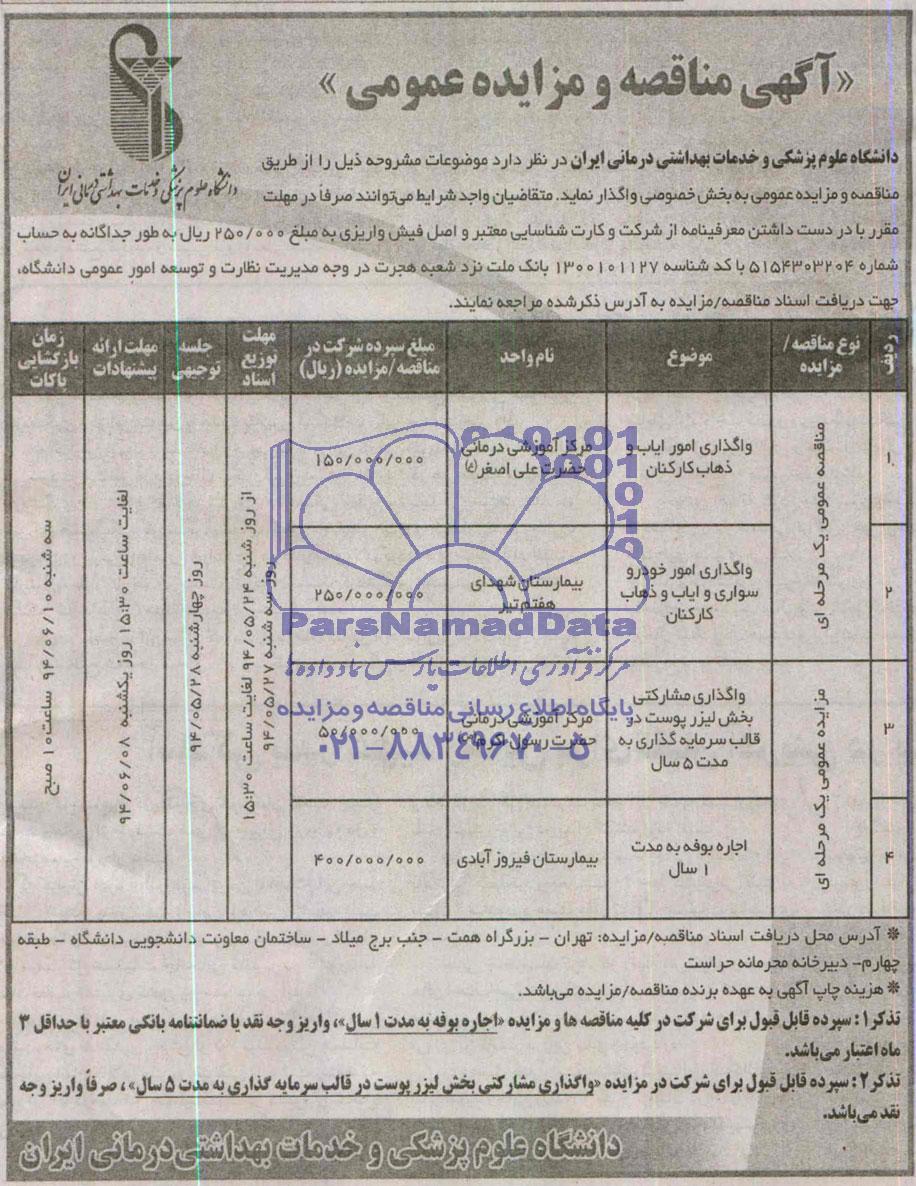 «آگهی مناقصه و مزایده عمومی»
دانشگاه علوم پزشکی و خدمات بهداشتی درمانی ایران
دانشگاه علوم پزشکی و خدمات بهداشتی درمانی ایران در نظر دارد موضوعات مشروحه ذیل را از طریق
مناقصه و مزایده عمومی به بخش خصوصی واگذار نماید. متقاضیان واجد شرایط می‌توانند صرفاً در مهلت
مقرر با در دست داشتن معرفینامه از شرکت و کارت شناسایی معتبر و اصل فیش واریزی به مبلغ ۲۵۰/۰۰۰ ریال به طور جداگانه به حساب
شماره ۵۱۵۴۳۰۳۲۰۴ با کد شناسه ۱۳۰۰۱۰۱۱۲۷ بانک ملت نزد شعبه هجرت در وجه مدیریت نظارت و توسعه امور عمومی دانشگاه،
جهت دریافت اسناد مناقصه/مزایده به آدرس ذکرشده مراجعه نمایند.
ردیف
نوع مناقصه/
مزایده
موضوع
نام واحد
مبلغ سپرده شرکت در
مناقصه/مزایده (ریال)
مهلت
توزیع
اسناد
جلسه
توجیهی
مهلت ارائه
پیشنهادات
زمان
بازگشایی
پاکات
۱
مناقصه عمومی یک مرحله ای
واگذاری امور ایاب و
ذهاب کارکنان
مرکز آموزشی درمانی
حضرت علی اصغر (ع)
۱۵۰/۰۰۰/۰۰۰
از روز شنبه ۹۴/۰۵/۲۴ لغایت ساعت ۱۵:۳۰
روز سه شنبه ۹۴/۰۵/۲۷
روز چهارشنبه ۹۴/۰۵/۲۸
لغایت ساعت ۱۵:۳۰ روز یکشنبه ۹۴/۰۶/۰۸
سه شنبه ۹۴/۰۶/۱۰ ساعت ۱۰ صبح
۲
واگذاری امور خودرو
سواری و ایاب و ذهاب
کارکنان
بیمارستان شهدای
هفتم تیر
۲۵۰/۰۰۰/۰۰۰
۳
مزایده عمومی یک مرحله ای
واگذاری مشارکتی
بخش لیزر پوست در
قالب سرمایه گذاری به
مدت ۵ سال
مرکز آموزشی درمانی
حضرت رسول اکرم
۵۰/۰۰۰/۰۰۰
۴
اجاره بوفه به مدت
۱ سال
بیمارستان فیروز آبادی
۴۰۰/۰۰۰/۰۰۰
ParsNamadData
مرکز فرآوری اطلاعات پارس نماد داده‌ها
پایگاه اطلاع رسانی مناقصه و مزایده
۰۲۱-۸۸۳۴۹۶۷۰-۵
* آدرس محل دریافت اسناد مناقصه/مزایده: تهران - بزرگراه همت - جنب برج میلاد - ساختمان معاونت دانشجویی دانشگاه - طبقه
چهارم- دبیرخانه محرمانه حراست
* هزینه چاپ آگهی به عهده برنده مناقصه/مزایده می‌باشد.
تذکر۱: سپرده قابل قبول برای شرکت در کلیه مناقصه ها و مزایده «اجاره بوفه به مدت ۱ سال»، واریز وجه نقد یا ضمانتنامه بانکی معتبر با حداقل ۳
ماه اعتبار می‌باشد.
تذکر۲: سپرده قابل قبول برای شرکت در مزایده «واگذاری مشارکتی بخش لیزر پوست در قالب سرمایه گذاری به مدت ۵ سال»، صرفاً واریز وجه
نقد می‌باشد.
دانشگاه علوم پزشکی و خدمات بهداشتی درمانی ایران